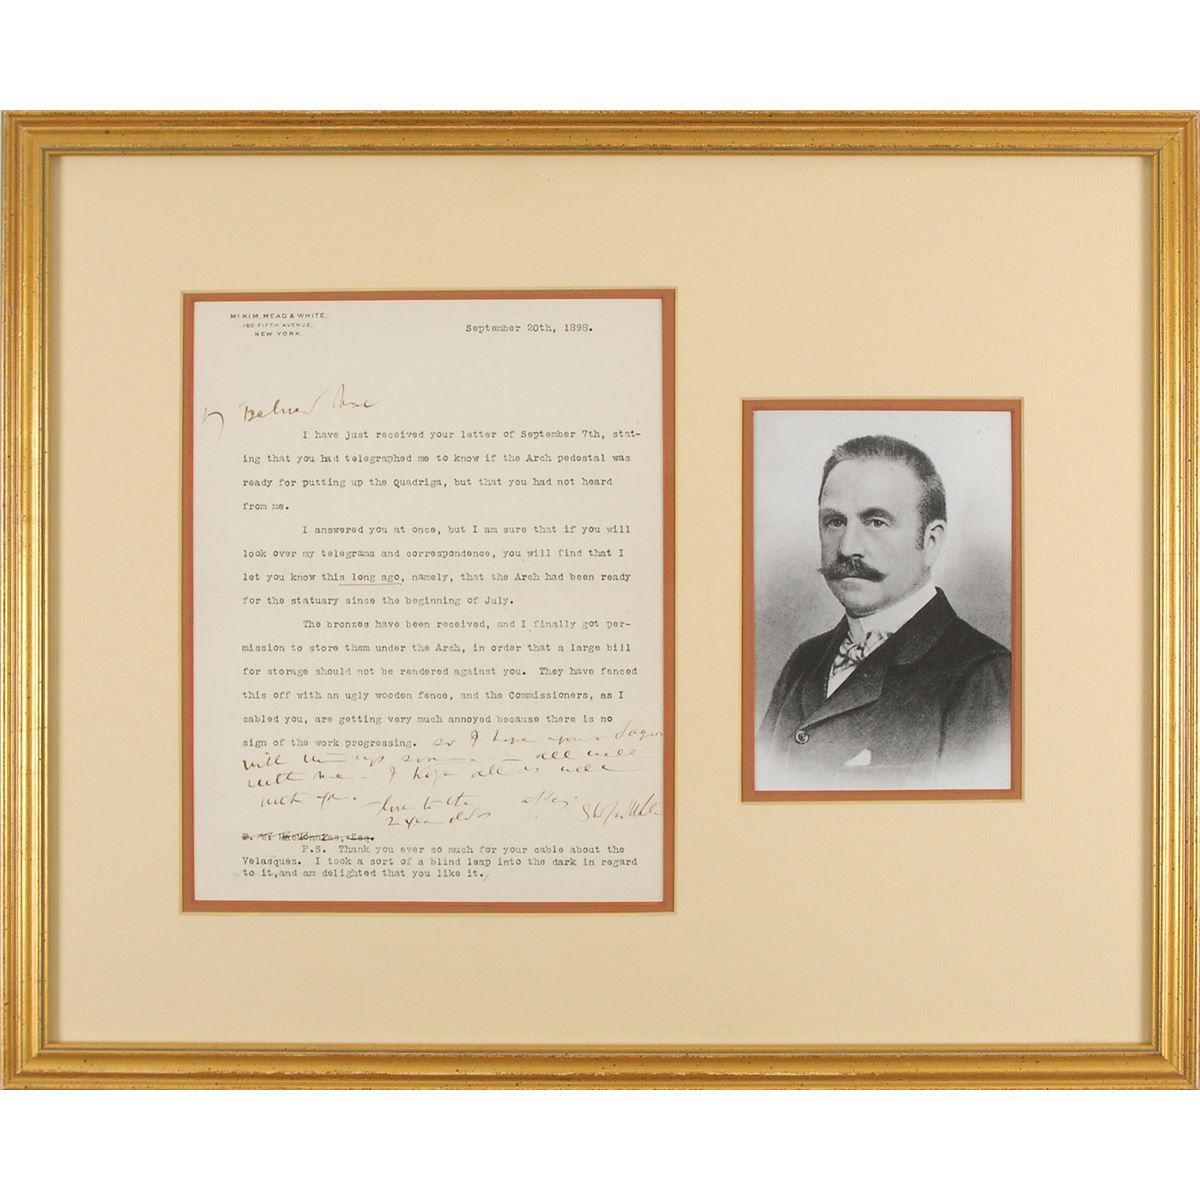 McKIM, MEAD & WHITE,
160 FIFTH AVENUE,
NEW YORK.
September 20th, 1898.
Beloved Mac
I have just received your letter of September 7th, stat-
ing that you had telegraphed me to know if the Arch pedestal was
ready for putting up the Quadriga, but that you had not heard
from me.
I answered you at once, but I am sure that if you will
look over my telegrams and correspondence, you will find that I
let you know this long ago, namely, that the Arch had been ready
for the statuary since the beginning of July.
The bronzes have been received, and I finally got per-
mission to store them under the Arch, in order that a large bill
for storage should not be rendered against you. They have fenced
this off with an ugly wooden fence, and the Commissioners, as I
cabled you, are getting very much annoyed because there is no
sign of the work progressing. so I hope your
will up soon all well
with me - I hope all is well
with you.
love to the
2 year olds
MacMonnies, Esq.
P.S. Thank you ever so much for your cable about the
Velasquez. I took a sort of a blind leap into the dark in regard
to it, and am delighted that you like it.